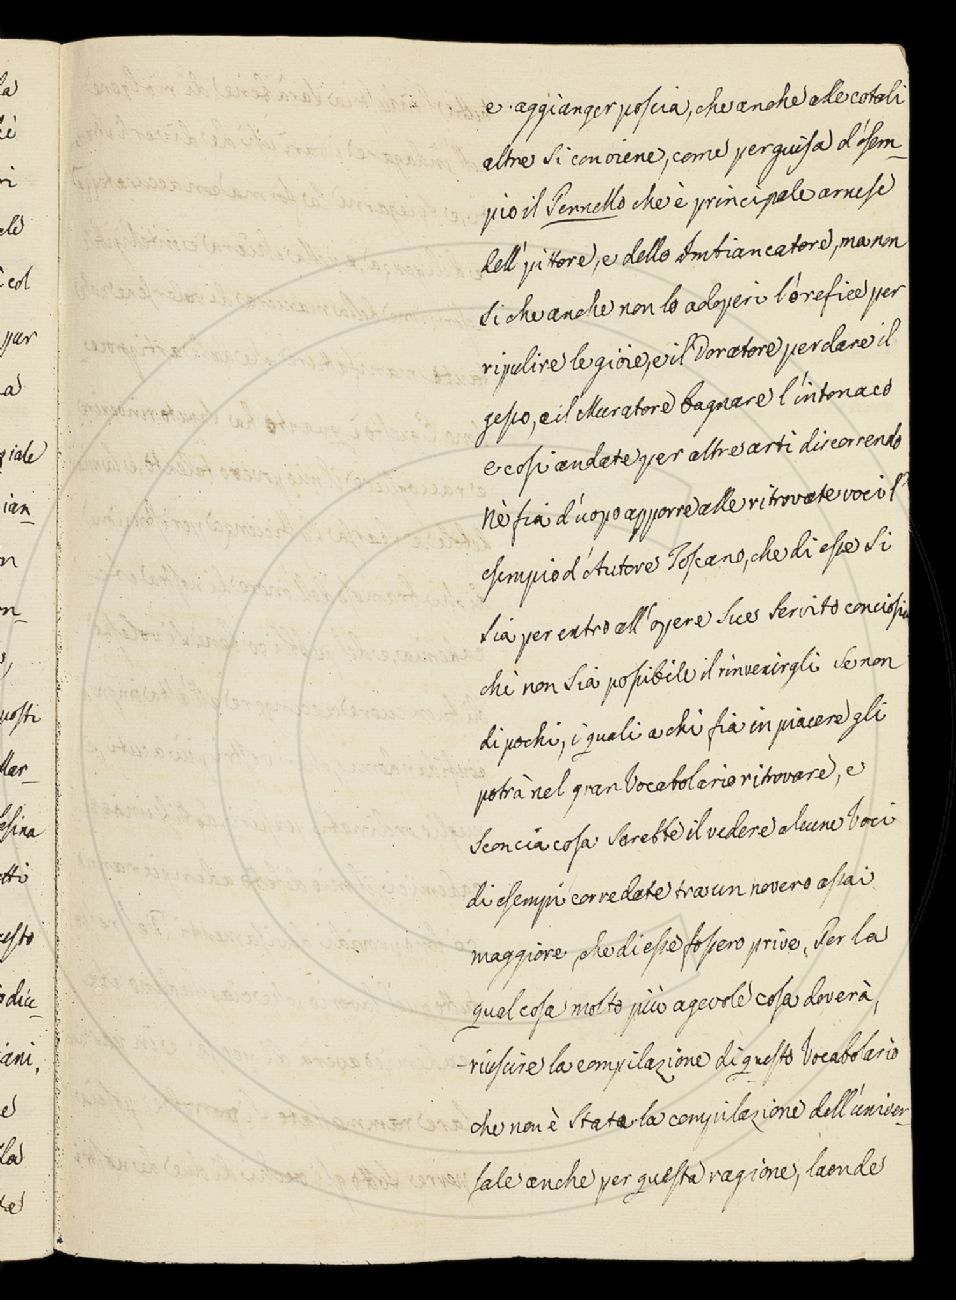 e aggiunger poscia, che anche alle cotali
altre si conviene, come per guisa d'esem-
pio il Pennello che è principale arnese
dell' pittore, e dello Imbiancatore, ma non
si che anche non lo adoperi l'orefice per
ripulire le gioie, e il Doratore per dare il
gesso, e il Muratore bagnare l'intonaco
e così andate per altre arti discorrendo
Nè fia d'uopo apporre alle ritrovate voci l'
esempio d'Autore Toscano, che di esse si
sia per entro all'opere sue servito conciosia
chè non sia possibile il rinvenirgli se non
di pochi, i quali a chi fia in piacere gli
potrà nel gran Vocabolario ritrovare, e
sconcia cosa sarebbe il vedere alcune Voci
di esempi corredate tra un novero assai
maggiore che di esse fossero prive. Per la
qual cosa molto più agevole cosa doverà,
riuscire la compilazione di questo Vocabolario
che non è stata la compilazione dell'univer-
sale anche per questa ragione, laonde